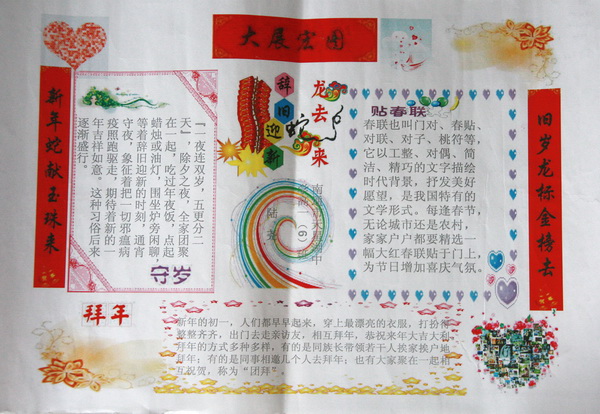 大展宏图
旧岁龙标金榜去
新年蛇献玉珠来
辞旧迎新
龙去蛇来
『一夜连双岁，五更分二
天』，除夕之夜，全家团聚
在一起，吃过年夜饭，点起
蜡烛或油灯，围坐炉旁闲聊，
等着辞旧迎新的时刻，通宵
守夜，象征着把一切邪瘟病
疫照跑驱走，期待着新的一
年吉祥如意。这种习俗后来
逐渐盛行。
守岁
贴春联
春联也叫门对、春贴、
对联、对子、桃符等，
它以工整、对偶、简
洁、精巧的文字描绘
时代背景，抒发美好
愿望，是我国特有的
文学形式。每逢春节，
无论城市还是农村，
家家户户都要精选一
幅大红春联贴于门上，
为节日增加喜庆气氛。
（6）
陆
拜年
新年的初一，人们都早早起来，穿上最漂亮的衣服，打扮得
整整齐齐，出门去走亲访友，相互拜年，恭祝来年大吉大利
拜年的方式多种多样，有的是同族长带领若干人挨家挨户地
拜年；有的是同事相邀几个人去拜年；也有大家聚在一起相
互祝贺，称为“团拜”。